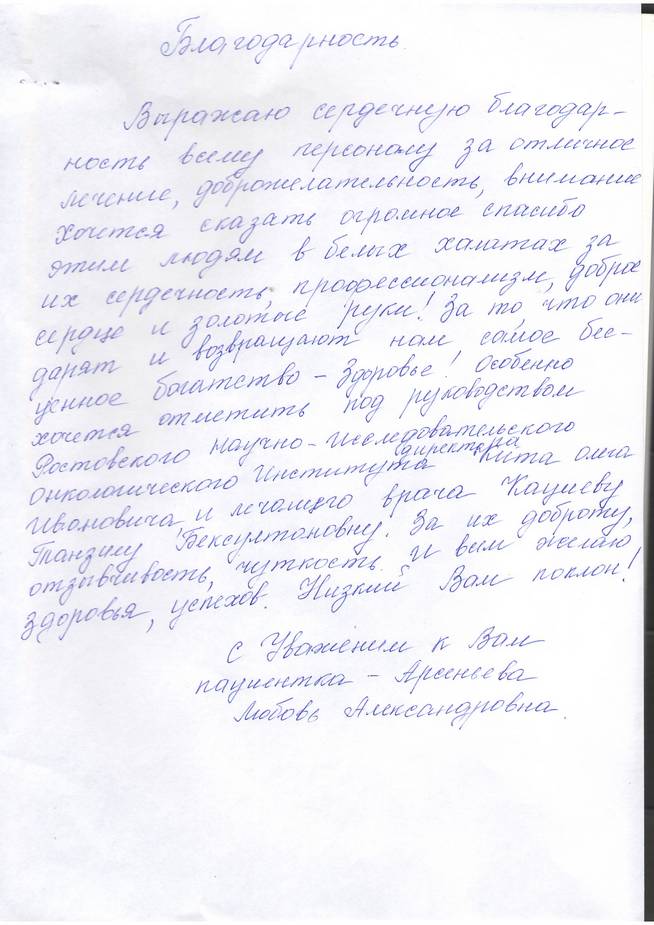 Благодарность.
Выражаю сердечную благодар-
ность всему персоналу за отличное
лечение, доброжелательность, внимание
хочется сказать огромное спасибо
этим людям в белых халатах за
их сердечность, профессионализм, доброе
сердце и золотые руки! За то, что они
дарят и возвращают нам самое бес-
ценное богатство – Здоровье! Особенно
хочется отметить под руководством
Ростовского научно-исследовательского
онкологического Института директора Кита Олега
Ивановича и лечащего врача Кациеву
Танзилу Бексултоновну. За их доброту,
отзывчивость, чуткость. И вам желаю
здоровья, успехов. Низкий Вам поклон!
С Уважением к Вам
пациентка – Арсеньева
Любовь Александровна.